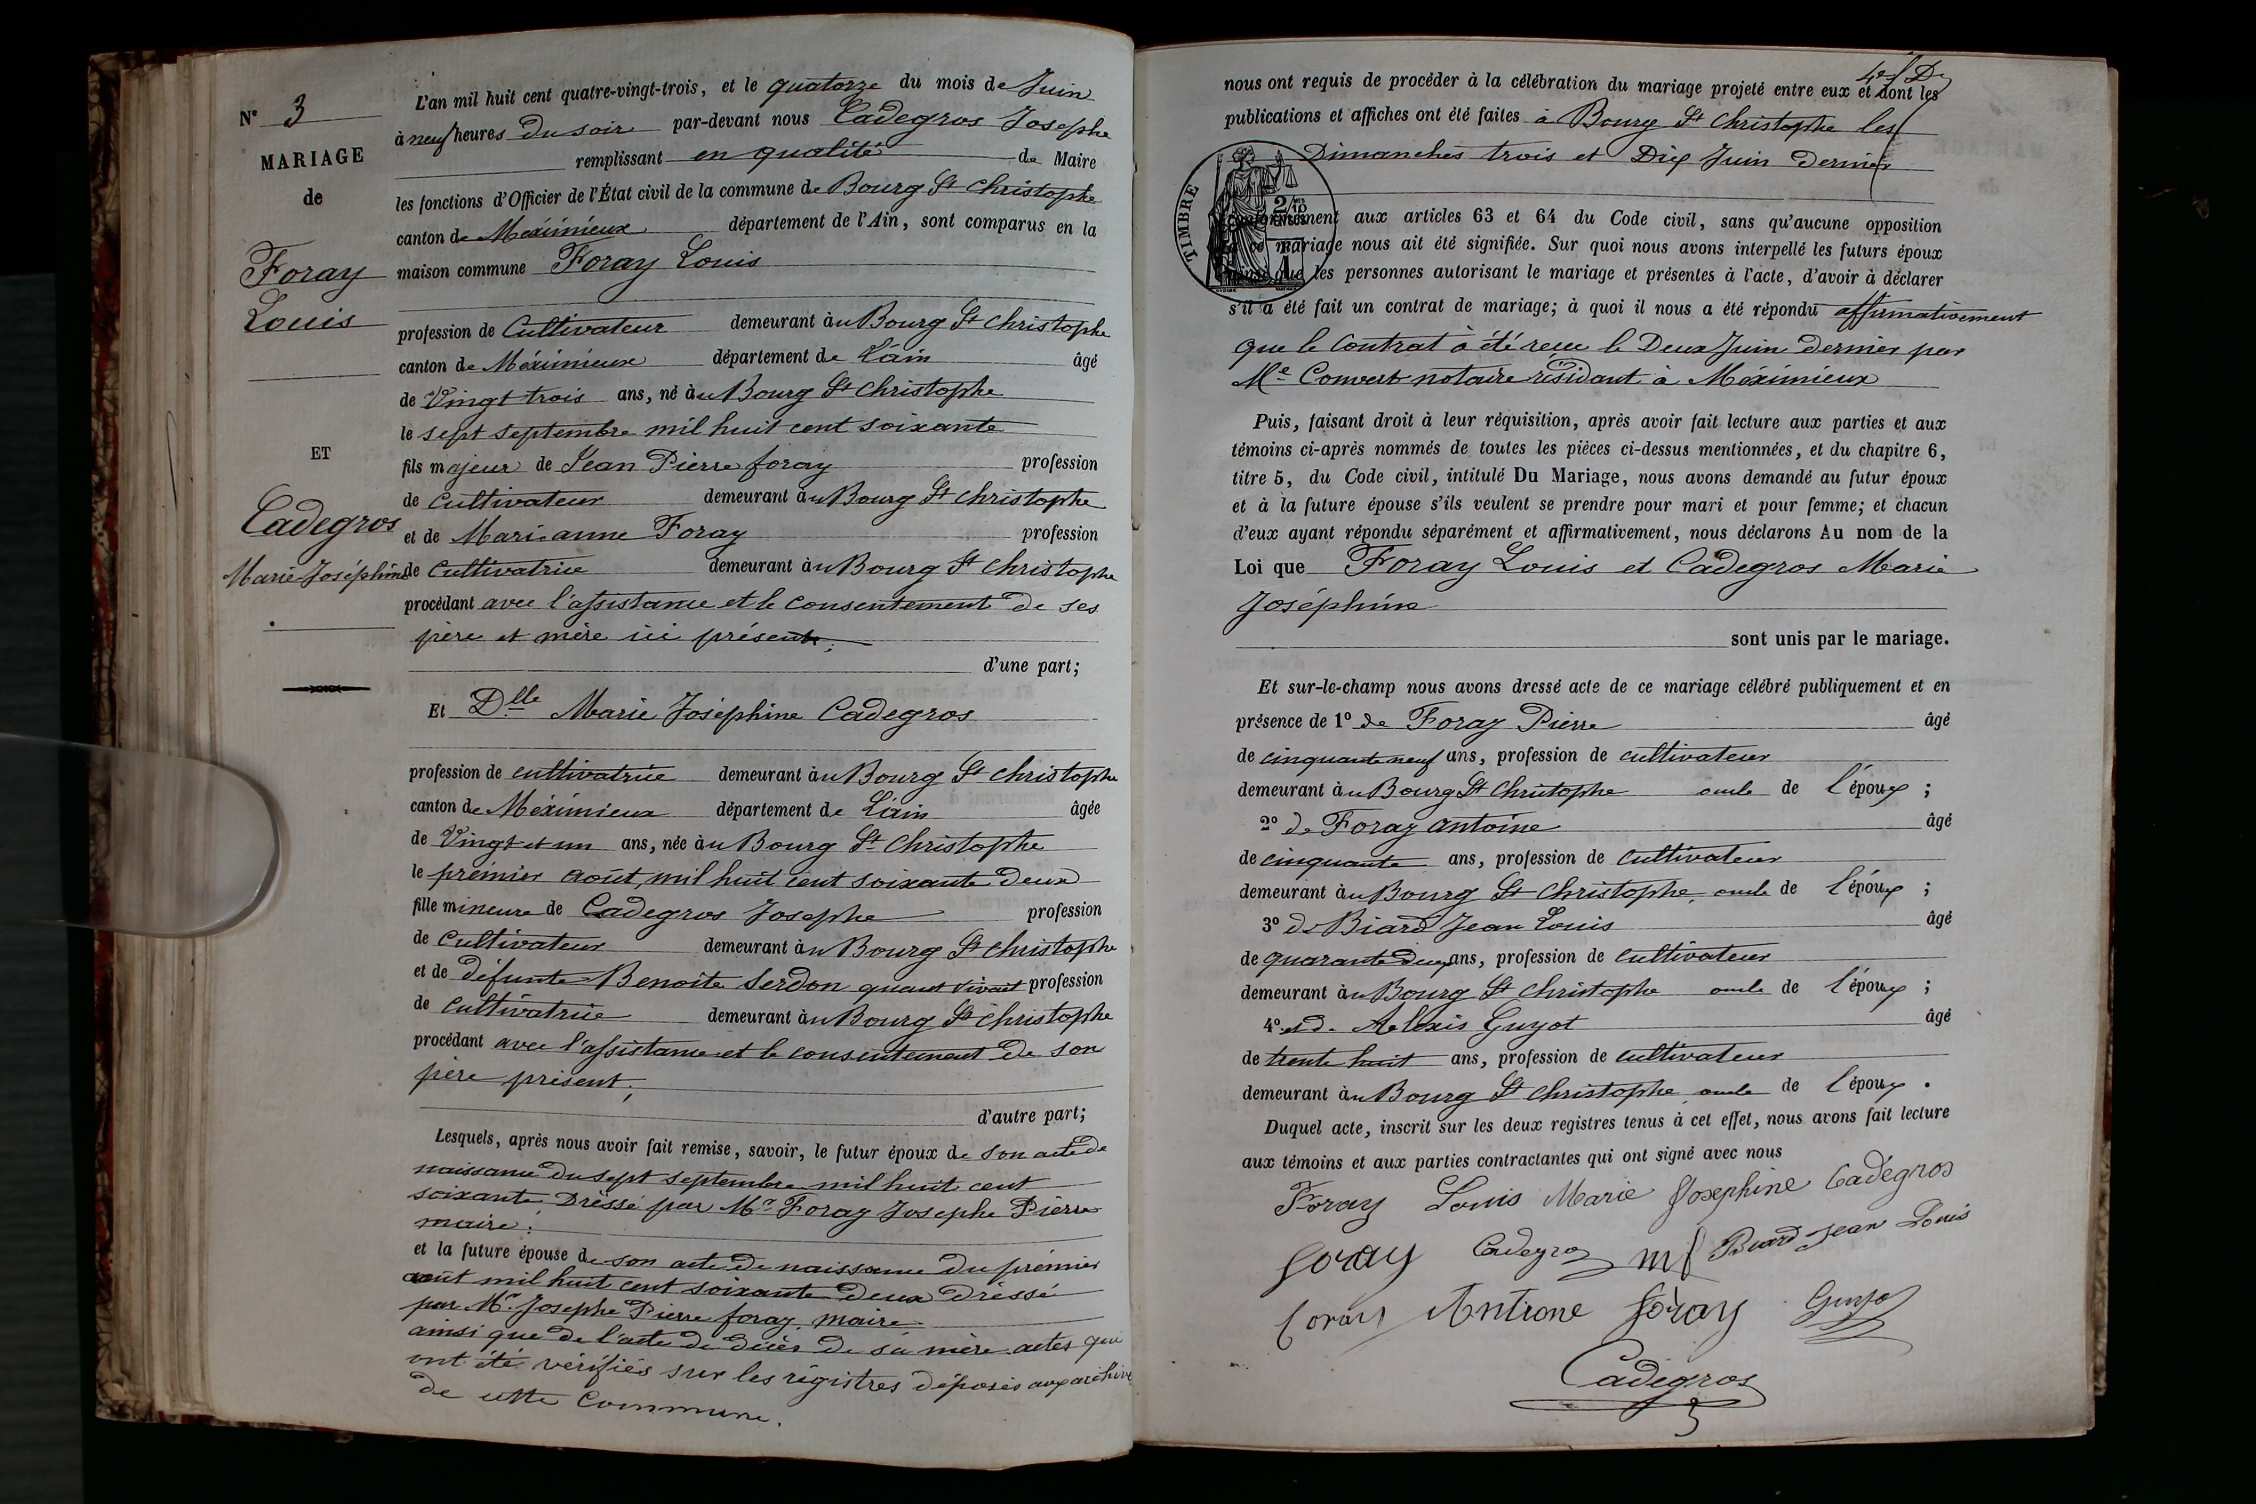 N° 3
MARIAGE
de
Foray
Louis
ET
Cadegros
Marie Joséphine
L'an mil huit cent quatre-vingt-trois, et le quatorze du mois de Juin
à neuf heures du soir par-devant nous Cadegros Josephe
remplissant en qualité de Maire
les fonctions d'Officier de l'État civil de la commune de Bourg St Christophe
canton de Méximieux département de l'Ain, sont comparus en la
maison commune Foray Louis
profession de Cultivateur demeurant àu Bourg St Christophe
canton de Méximieux département de L'ain âgé
de Vingt trois ans, né àu Bourg St Christophe
le sept septembre mil huit cent soixante
fils majeur de Jean Pierre foray profession
de cultivateur demeurant àu Bourg St Christophe
et de Marianne Foray profession
de Cultivatrice demeurant àu Bourg St Christophe
procédant avec l'assistance et le consentement de ses
père et mère ici présents;
d'une part;
Et Dlle Marie Joséphine Cadegros
profession de cultivatrice demeurant àu Bourg St Christophe
canton de Méximieux département de L'ain âgée
de Vingt et un ans, née àu Bourg St Christophe
le prémier août, mil huit cent soixante deux
fille mineure de Cadegros Josephe profession
de cultivateur demeurant àu Bourg St Christophe
et de défunte Benoite Serdon quant vivait profession
de cultivatrice demeurant àu Bourg St Christophe
procédant avec l'assistance et le consentement de son
père présent;
d'autre part;
Lesquels, après nous avoir fait remise, savoir, le futur époux de son acte de
naissance du sept septembre mil huit cent
soixante, Dréssé par Mr Foray Josephe Pierre
maire.
et la future épouse de son acte de naissance du prémier
août mil huit cent soixante deux dréssé
par Mr Josephe Pierre foray, maire
ainsi que de l'acte de décès de sa mère actes qui
ont été vérifiés sur les régistres déposés aux archives
de cette commune.
nous ont requis de procéder à la célébration du mariage projeté entre eux et dont les
publications et affiches ont été faites à Bourg St Christophe les
Dimanches trois et Dix Juin dernier
TIMBRE
conformément aux articles 63 et 64 du Code civil, sans qu'aucune opposition
à ce mariage nous ait été signifiée. Sur quoi nous avons interpellé les futurs époux
ainsi que les personnes autorisant le mariage et présentes à l'acte, d'avoir à déclarer
s'il a été fait un contrat de mariage; à quoi il nous a été répondu affirmativement
que le Contrat à été reçue le Deux Juin dernier par
Me Convert notaire résidant à Méximieux
Puis, faisant droit à leur réquisition, après avoir fait lecture aux parties et aux
témoins ci-après nommés de toutes les pièces ci-dessus mentionnées, et du chapitre 6,
titre 5, du Code civil, intitulé Du Mariage, nous avons demandé au futur époux
et à la future épouse s'ils veulent se prendre pour mari et pour femme; et chacun
d'eux ayant répondu séparément et affirmativement, nous déclarons Au nom de la
Loi que Foray Louis et Cadegros Marie
Joséphine
sont unis par le mariage.
Et sur-le-champ nous avons dressé acte de ce mariage célébré publiquement et en
présence de 1° de Foray Pierre âgé
de cinquante neuf ans, profession de cultivateur
demeurant àu Bourg St Christophe oncle de l'époux ;
2° de Foray antoine âgé
de cinquante ans, profession de cultivateur
demeurant àu Bourg St Christophe, oncle de l'époux ;
3° de Biard Jean Louis âgé
de quarante deux ans, profession de cultivateur
demeurant àu Bourg St Christophe oncle de l'époux ;
4° de Alexis Guyot âgé
de trente huit ans, profession de cultivateur
demeurant àu Bourg St Christophe, oncle de l'époux .
Duquel acte, inscrit sur les deux registres tenus à cet effet, nous avons fait lecture
aux témoins et aux parties contractantes qui ont signé avec nous
Foray Louis Marie Josephine Cadégros
foray Cadegros mf Biard Jean Louis
foray Antione foray Guyot
Cadégros